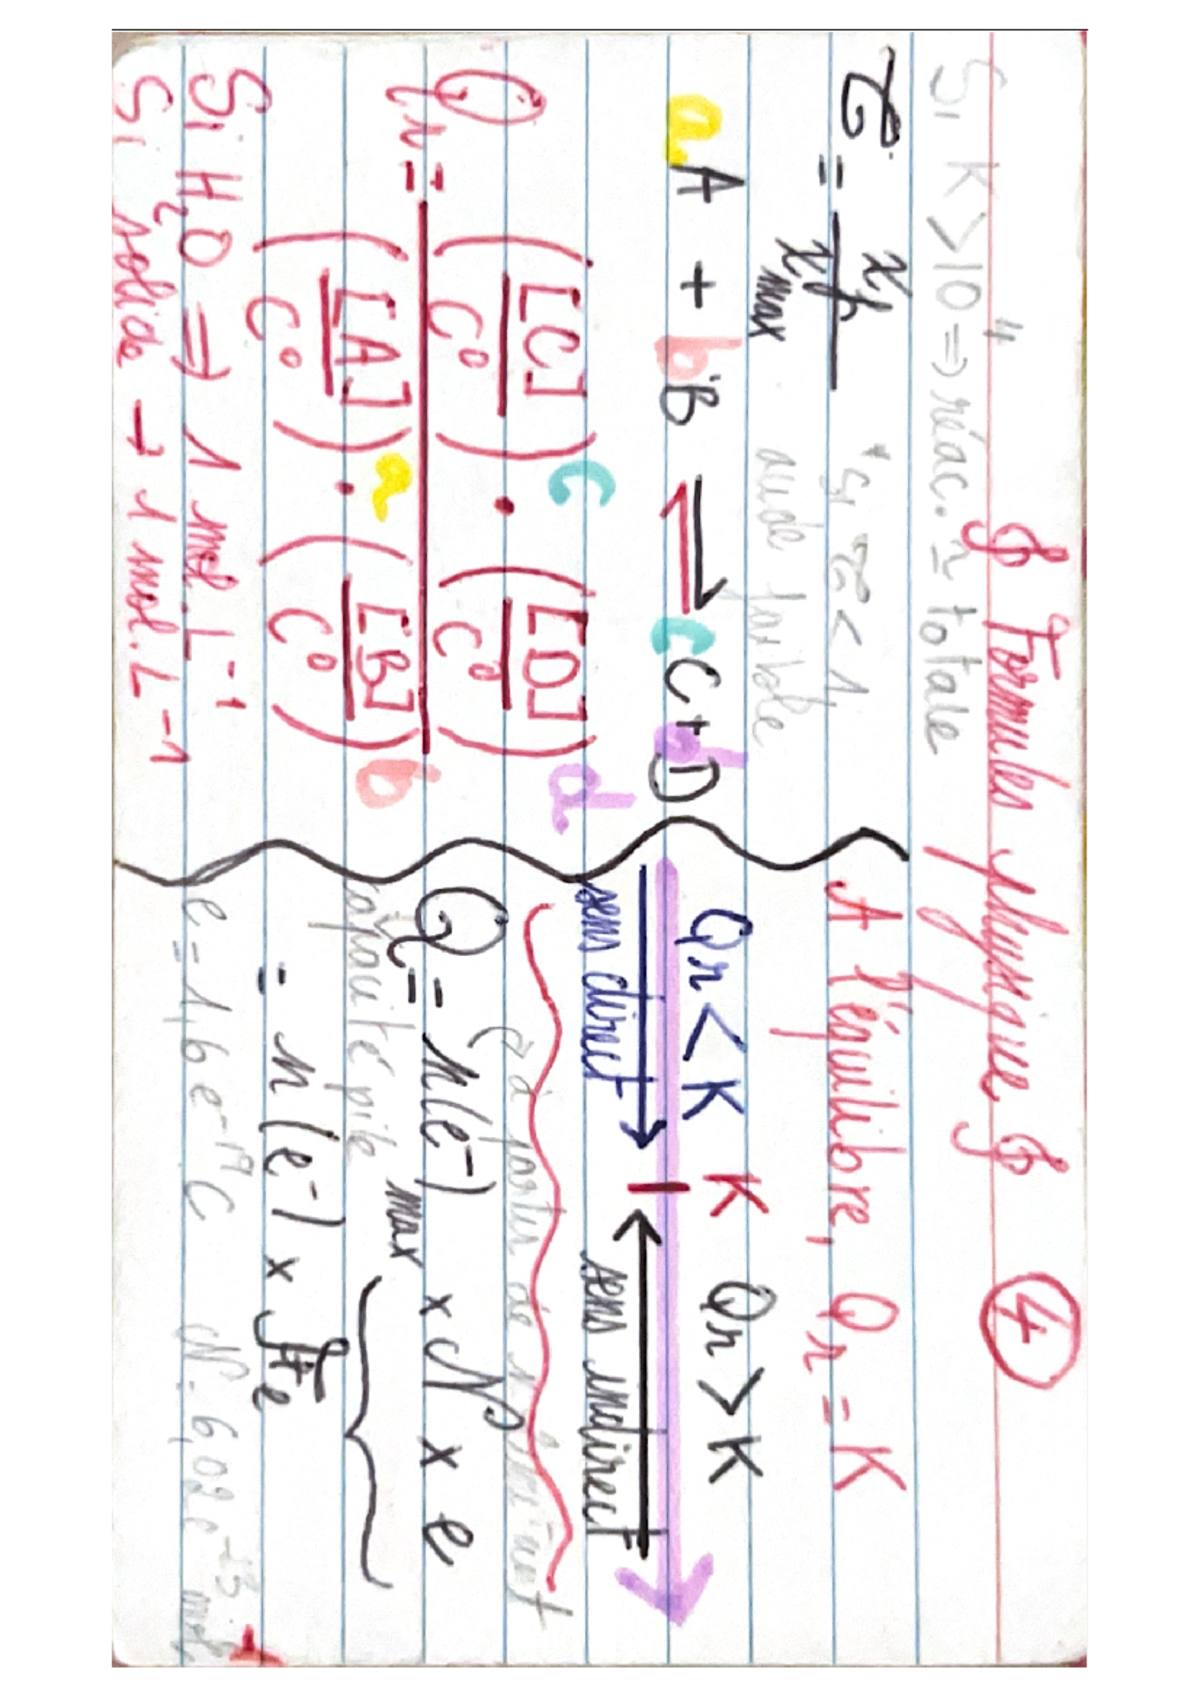 Formules physique ④
Si K > 10⁴ ⇒ réac. ≃ totale
τ = xf / xmax
* si τ < 1
acide faible
aA + bB ⇌ cC + dD
Qr = ([C]/C°)ᶜ · ([D]/C°)ᵈ / ([A]/C°)ᵃ · ([B]/C°)ᵇ
Si H₂O ⇒ 1 mol.L⁻¹
Si solide → 1 mol.L⁻¹
A l'équilibre, Qr = K
Qr < K K Qr > K
sens direct sens indirect
↳ à partir de
Q = n(e⁻)max x N x e
capacité pile
= n(e⁻) x Fe
e = 1,6 e⁻¹⁹ C N = 6,02 e⁻²³ mol